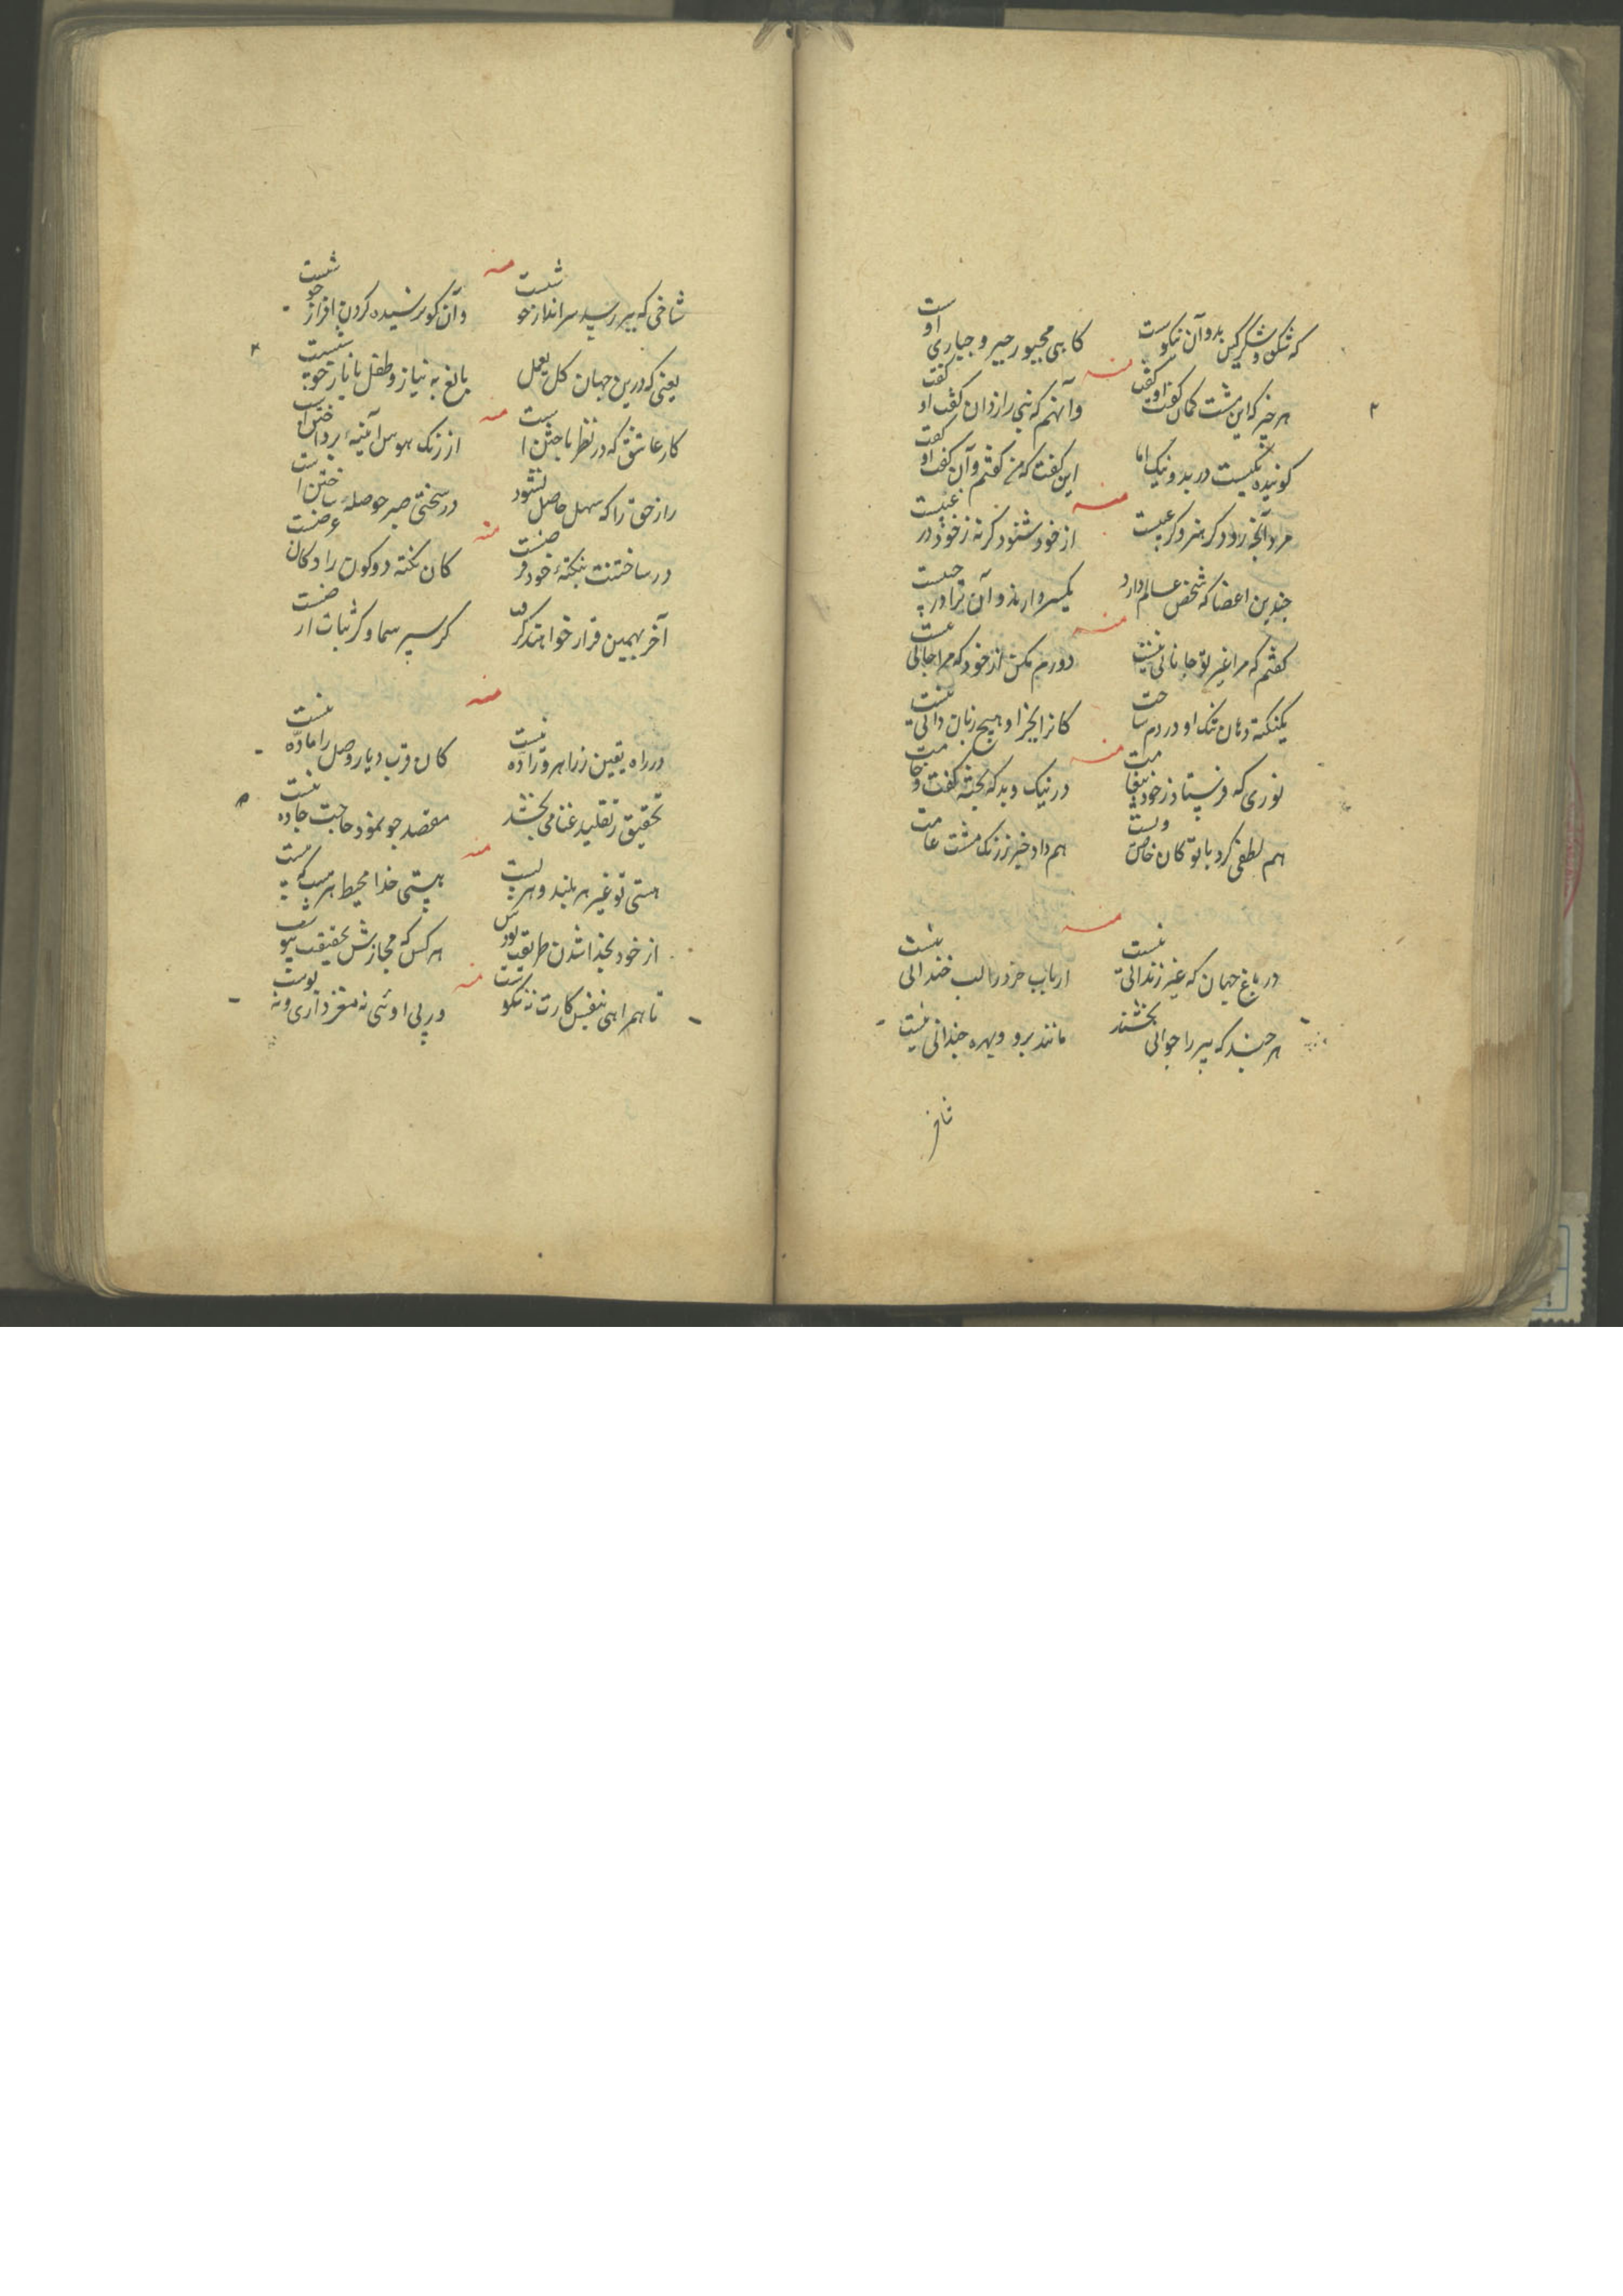 که شکن و شکر گیس بد و آن نیکوست کاهی مجبور جبر و جباری اوست
منه
هر خبر که این مشت کمان گفت او گفت وآنهم که نبی رازدان گفت او گفت
گوینده یکیست در بد و نیک اما این گفت که من گفتم و آن گفت او گفت
منه
مرد آنچه رود گر هنر و گر عیبست از خود شنود گرنه ز خود در غیبست
چندین اعضا که شخص عالم دارد یکسر وارند و آن ترا در جیبست
منه
گفتم که مرا غیر تو جانانی نیست دورم مکن از خود که مرا جانی نیست
یکنکته دهان تنگ او در دم ساخت کانرا بجز او هیچ زبان دانی نیست
منه
نوری که فرستاد ز خود در نیک و بد که پخته گفت و خامت
هم لطفی کرد با تو کان خاص هم داد خبر ز زنگ مشت عامت
منه
در باغ جهان که غیر زندانی نیست ارباب خرد را لب خندانی نیست
هر چند که پیر را جوانی بخشند مانند برو و بهره چندانی نیست
شاخ
منه
شاخی که ببر رسید سر انداز خوشست وآن کو نرسیده گردن افراز خوشست
یعنی که درین جهان کل یعمل بالغ به نیاز و طفل با ناز خوشست
منه
کار عاشق که در نظر باختن است از زنگ هوس آینه پرداختن است
راز حق را که سهل حاصل نشود در سختی صبر حوصله ساختن است
منه
در ساختنت بنکته خود کان نکته دو کون را دکان عوضست
آخر بهمین قرار خواهند گرفت گر سیر سما و گر ثبات ارضست
منه
در راه یقین زراهرو زاده نیست کان قرب دیار وصل را ماده نیست
تحقیق ز تقلید غنا می بخشد مقصد چو نمود حاجت جاده نیست
منه
هستی تو غیر هر بلند و هر پست هستی خدا محیط هر هست که هست
از خود بخدا شدن طریقت بودش هر کس که مجازش بحقیقت پیوست
منه
تا همراهی بنفس کارت نه نکوست در پی اوئی نه مغز داری و نه پوست